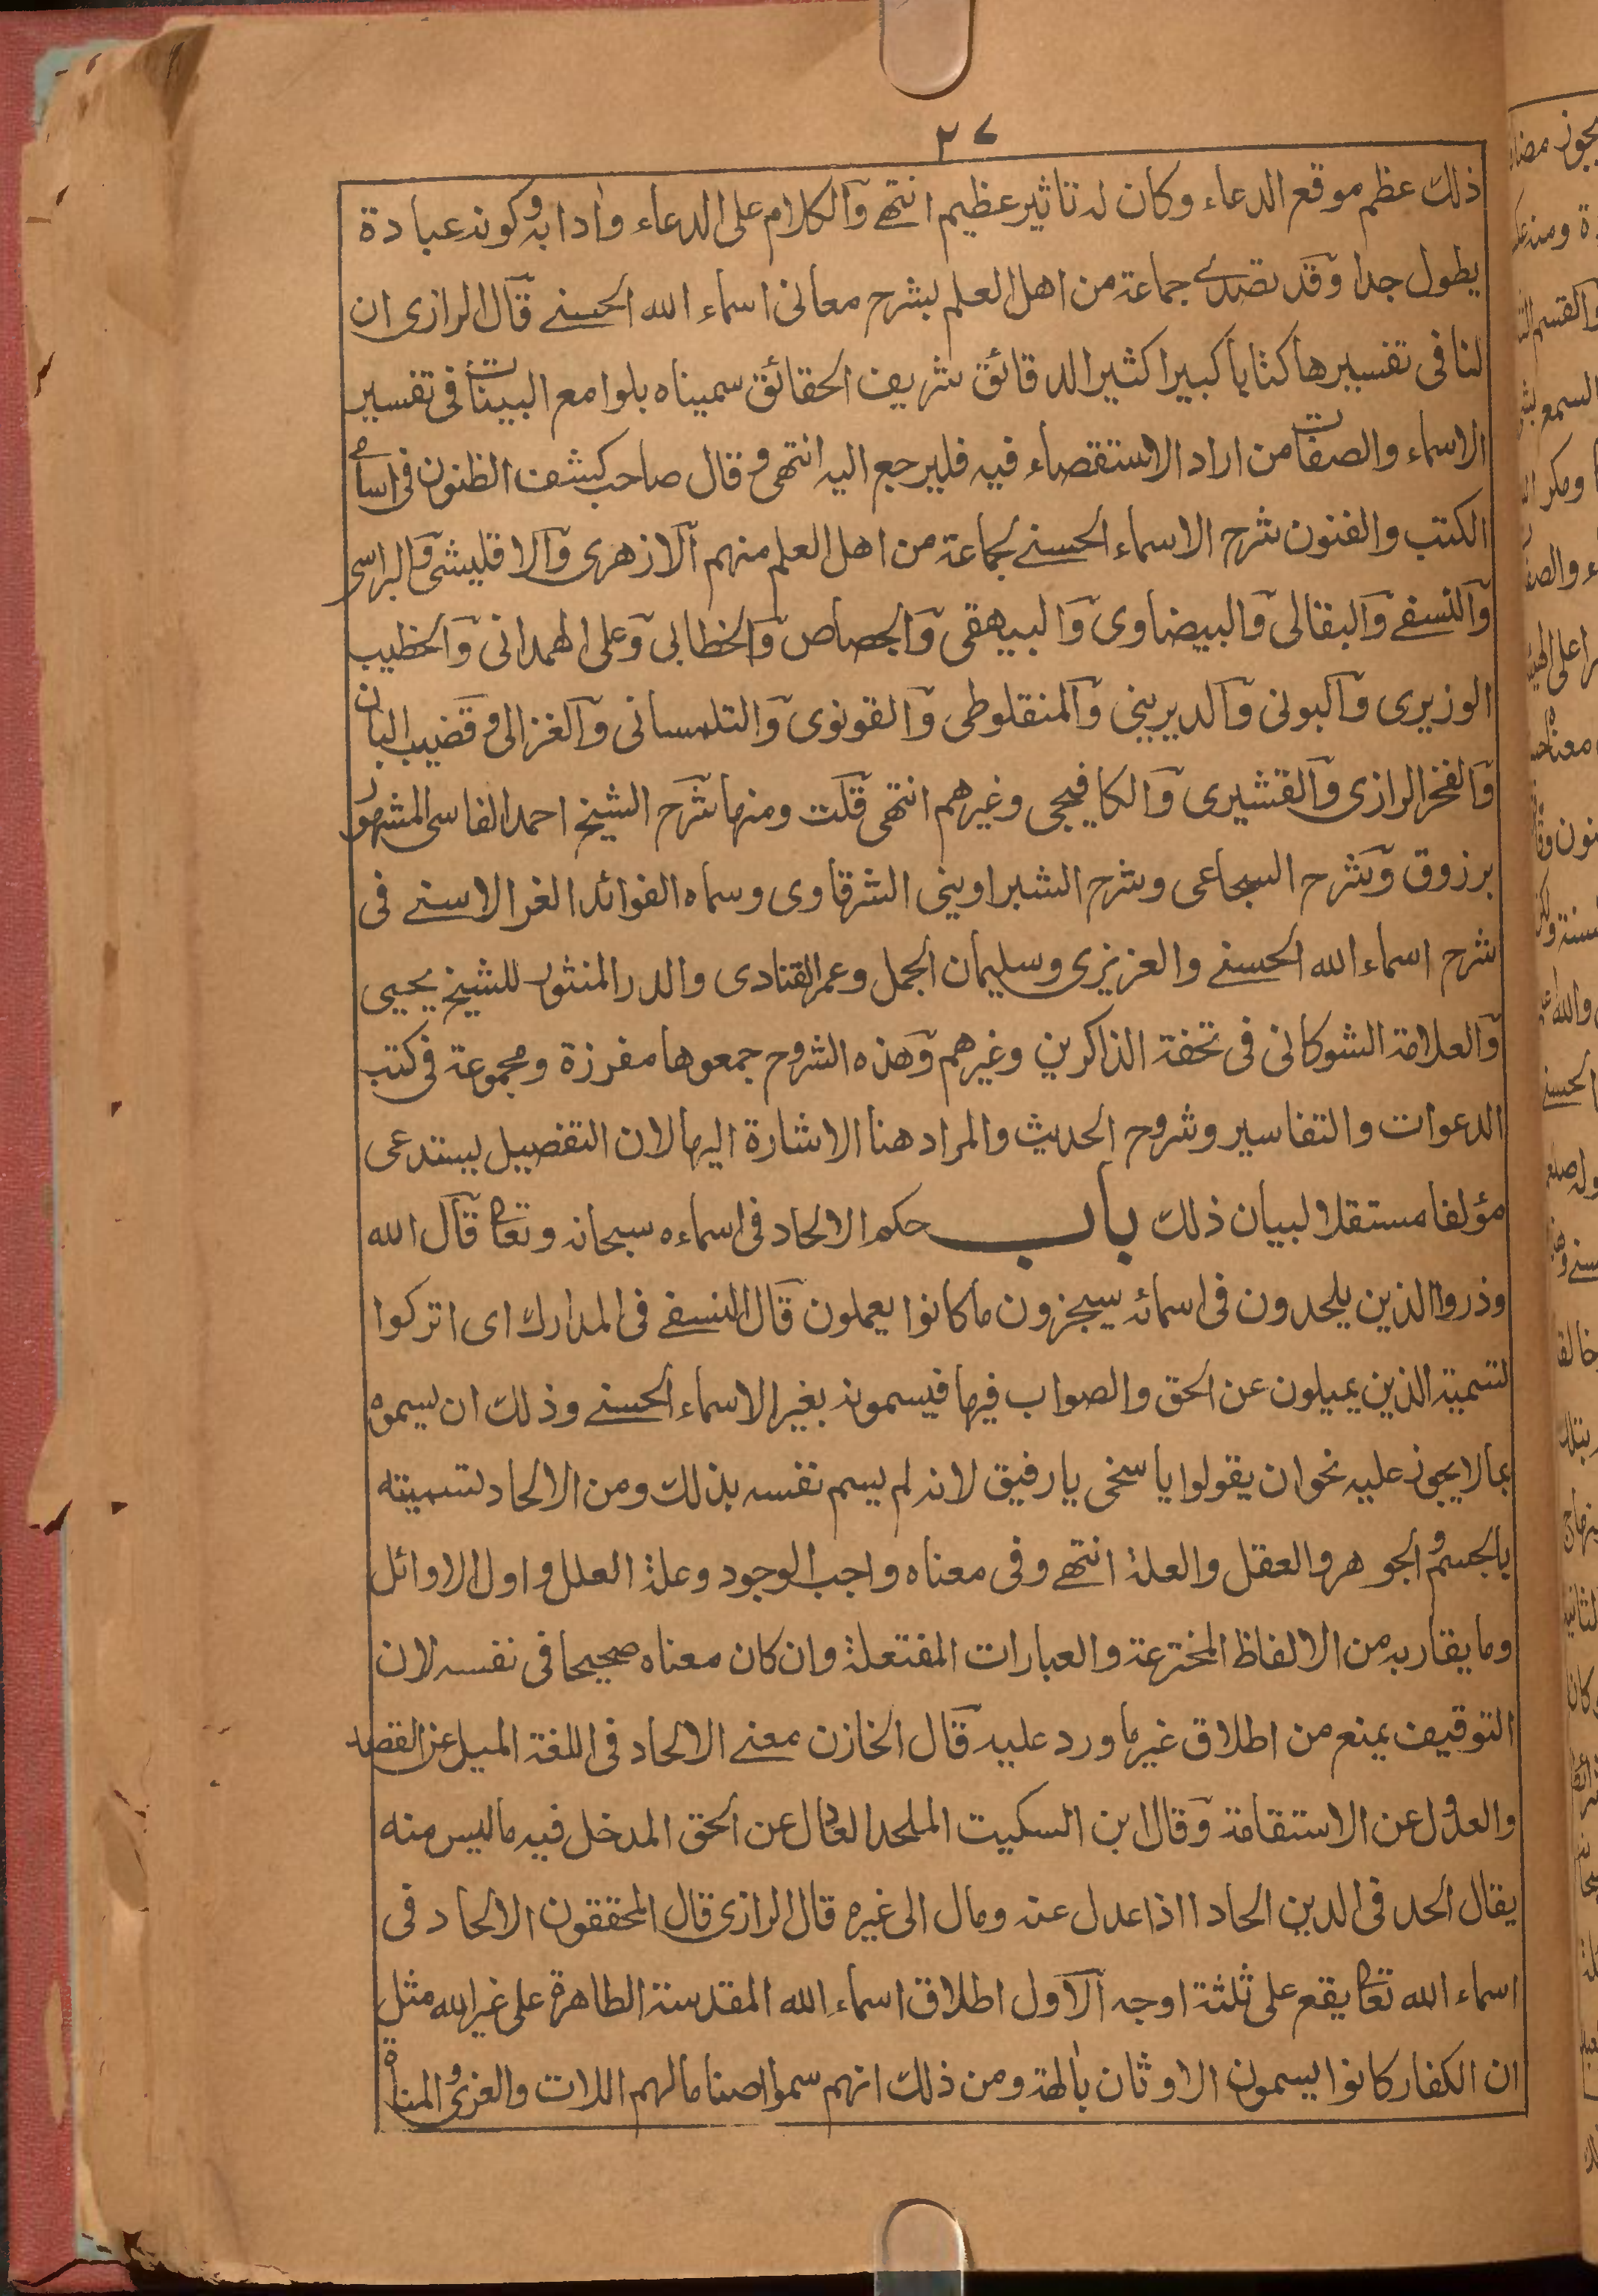 ٢٧
ذلك عظم موقع الدعاء وكان له تاثير عظيم انتهى والكلام على الدعاء وادابه وكونه عبادة
يطول جدا وقد تصدى جماعة من اهل العلم بشرح معانى اسماء الله الحسنى قال الرازى ان
لنا فى تفسيرها كتابا كبيرا كثير الدقائق شريف الحقائق سميناه بلوامع البينات فى تفسير
الاسماء والصفات من اراد الاستقصاء فيه فليرجع اليه انتهى وقال صاحب كشف الظنون فى اسامى
الكتب والفنون شرح الاسماء الحسنى لجماعة من اهل العلم منهم الازهرى والاقليشى والبراسى
والنسفى والبقالى والبيضاوى والبيهقى والجصاص والخطابى وعلى الهمدانى والخطيب
الوزيرى والبونى والديرينى والمنفلوطى والقونوى والتلمسانى والغزالى وقضيب البان
والفخر الرازى والقشيرى والكافيجى وغيرهم انتهى قلت ومنها شرح الشيخ احمد الفاسى المشهور
برزوق وشرح السجاعى وشرح الشبراوينى الشرقاوى وسماه الفوائد الغر الاسنى فى
شرح اسماء الله الحسنى والعزيزى وسليمان الجمل وعمر القنادى والدر المنثور للشيخ يحيى
والعلامة الشوكانى فى تحفة الذاكرين وغيرهم وهذه الشروح جمعوها مفرزة ومجموعة فى كتب
الدعوات والتفاسير وشروح الحديث والمراد هنا الاشارة اليها لان التفصيل يستدعى
مؤلفا مستقلا لبيان ذلك باب حكم الالحاد فى اسماءه سبحانه وتعا قال الله
وذروا الذين يلحدون فى اسمائه سيجزون ما كانوا يعملون قال النسفى فى المدارك اى اتركوا
تسمية الذين يميلون عن الحق والصواب فيها فيسمونه بغير الاسماء الحسنى وذلك ان يسموه
بما لا يجوز عليه نحو ان يقولوا يا سخى يا رفيق لانه لم يسم نفسه بذلك ومن الالحاد تسميته
بالجسم والجوهر والعقل والعلة انتهى وفى معناه واجب الوجود وعلة العلل واول الاوائل
وما يقاربه من الالفاظ المخترعة والعبارات المفتعلة وان كان معناه صحيحا فى نفسه لان
التوقيف يمنع من اطلاق غير ما ورد عليه قال الخازن معنى الالحاد فى اللغة الميل عن القصد
والعدول عن الاستقامة وقال ابن السكيت الملحد العادل عن الحق المدخل فيه ما ليس منه
يقال الحد فى الدين الحادا اذا عدل عنه ومال الى غيره قال الرازى قال المحققون الالحاد فى
اسماء الله تعا يقع على ثلثة اوجه الاول اطلاق اسماء الله المقدسة الطاهرة على غير الله مثل
ان الكفار كانوا يسمون الاوثان بالهة ومن ذلك انهم سموا اصناما لهم اللات والعزى والمناة